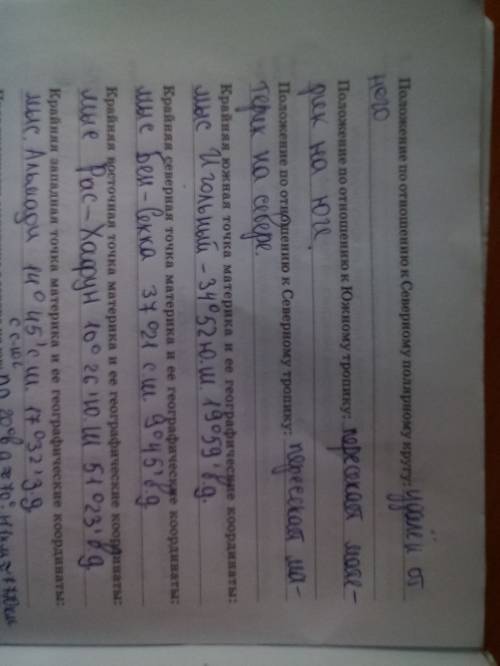 Положение по отношению к Северному полярному кругу: удалён от
него
Положение по отношению к Южному тропику: пересекает мате-
рик на юге
Положение по отношению к Северному тропику: пересекая ма-
терик на севере.
Крайняя южная точка материка и ее географические координаты:
мыс Игольный - 34°52 ю.ш 19°59' вд.
Крайняя северная точка материка и ее географические координаты:
мыс Бен-Секка 37°21 с ш 9°45' вд
Крайняя восточная точка материка и ее географические координаты:
мыс Рас-Хафун 10°26 ю ш 51°23' вд
Крайняя западная точка материка и ее географические координаты:
мыс Альмади 14°45' сш 17°32' зд
по 20° вд